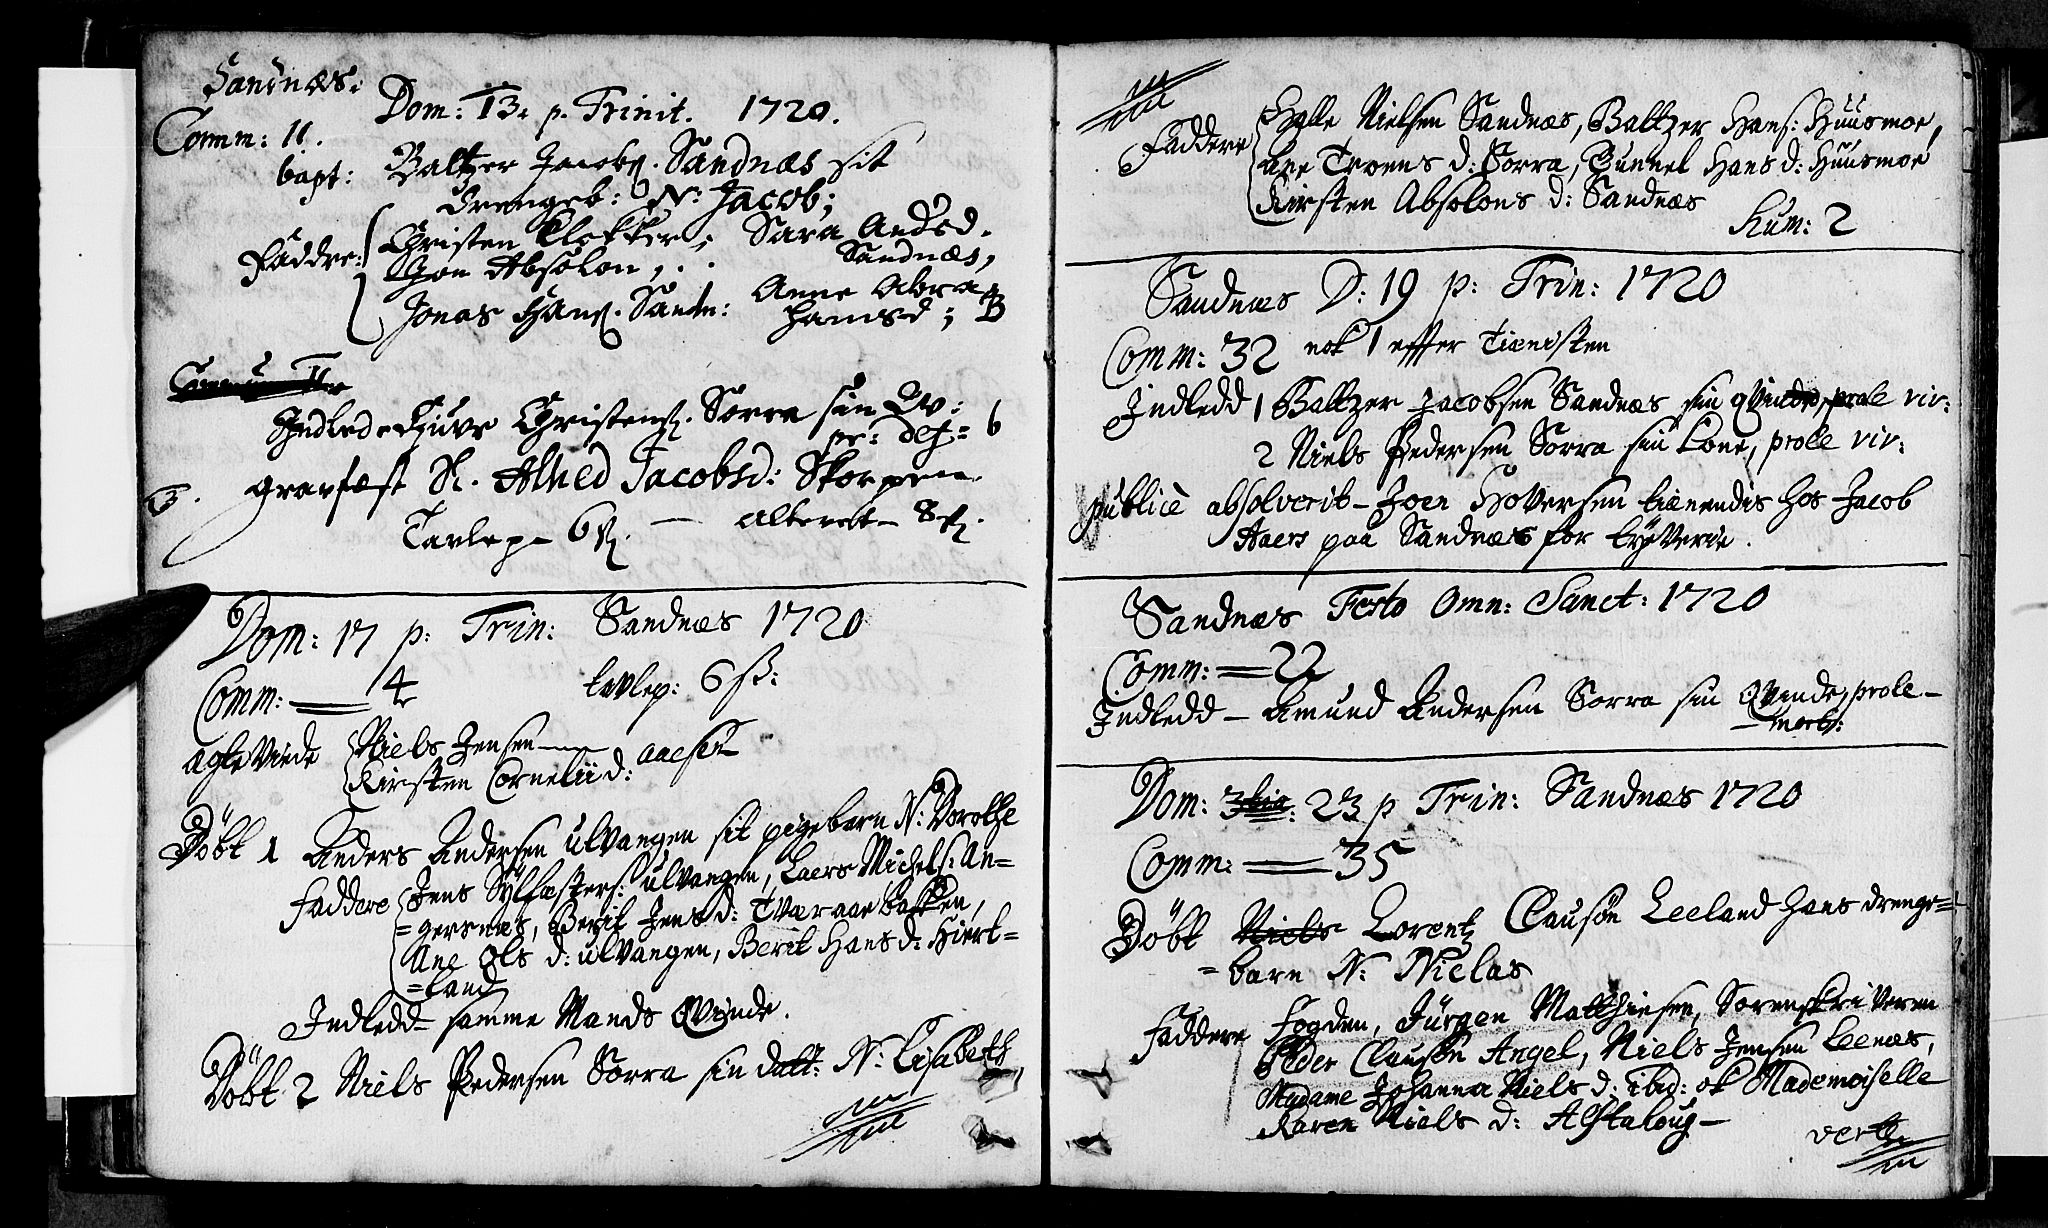 Sandnæs:
Dom: 13. p. Trinit. 1720.
Comm: 11.
bapt: Baltzer Jacobs. Sandnæs sit
drengeb: N: Jacob;
Faddre: Christen Klokker, Sara Andsd.
Jon Absolon, Sandnæs,
Jonas Hans. Sandn: Anne Abra
hamsd; B
Indledede Christens. Sorra sin Qv:
gravfæst Sl. Jacobsd: Skorpen.
Tavlep 6 ß. — alteret 8 ß.
Dom: 17 p: Trin: Sandnæs 1720
Comm: 4 tavlep: 6 ß:
ægte Viede Niels Jensen
Kirsten Cornelii d:
Döbt 1 Anders Andersen ulvangen sit pigebarn N: Dorothe
Faddere Jens Sylfæsters: ulvangen, Laers Michels: An=
=gersnæs, Berit Jens d: Tværaae bakken,
Ane Ols d: ulvangen, Berit Hans d: Hiert=
=land
Indledd samme Mands Qvinde.
Döbt 2 Niels Pedersen Sorra sin datt: N: Lisabeth
Faddere Halle Nielsen Sandnæs, Baltzer Hans: Huusmoe,
Ane Troens d: Sorra, Gunnel Hans d: Huusmoe
Kirsten Absolons d: Sandnæs
Hum: 2
Sandnæs D: 19 p: Trin: 1720
Comm: 32 nok 1 effter Tienisten
Indledd 1 Baltzer Jacobsen Sandnæs sin qvinde, prole viv:
2 Niels Pedersen Sorra sin Kone, prole viv:
publicè absolverit Joen Hoversen tienendis hos Jacob
Aaers paa Sandnæs for tyeVerie.
Sandnæs Festo Omn: Sanct: 1720
Comm: 22
Indledd — Amund Andersen Sorra sin Qvinde, prole
mort:
Dom: 23 p Trin: Sandnæs 1720
Comm: 35
Döbt Niels Lorentz Clausön Leeland hans drenge=
=barn N: Niclas
Faddere Fogden, Jürgen Matthiesen, Sorenskriveren
Peder Clausön Angel, Niels Jensen Leenæs,
Madame Johanna Niels d: ibid: ok Mademoiselle
Karen Niels d: Alstahoug —
verte